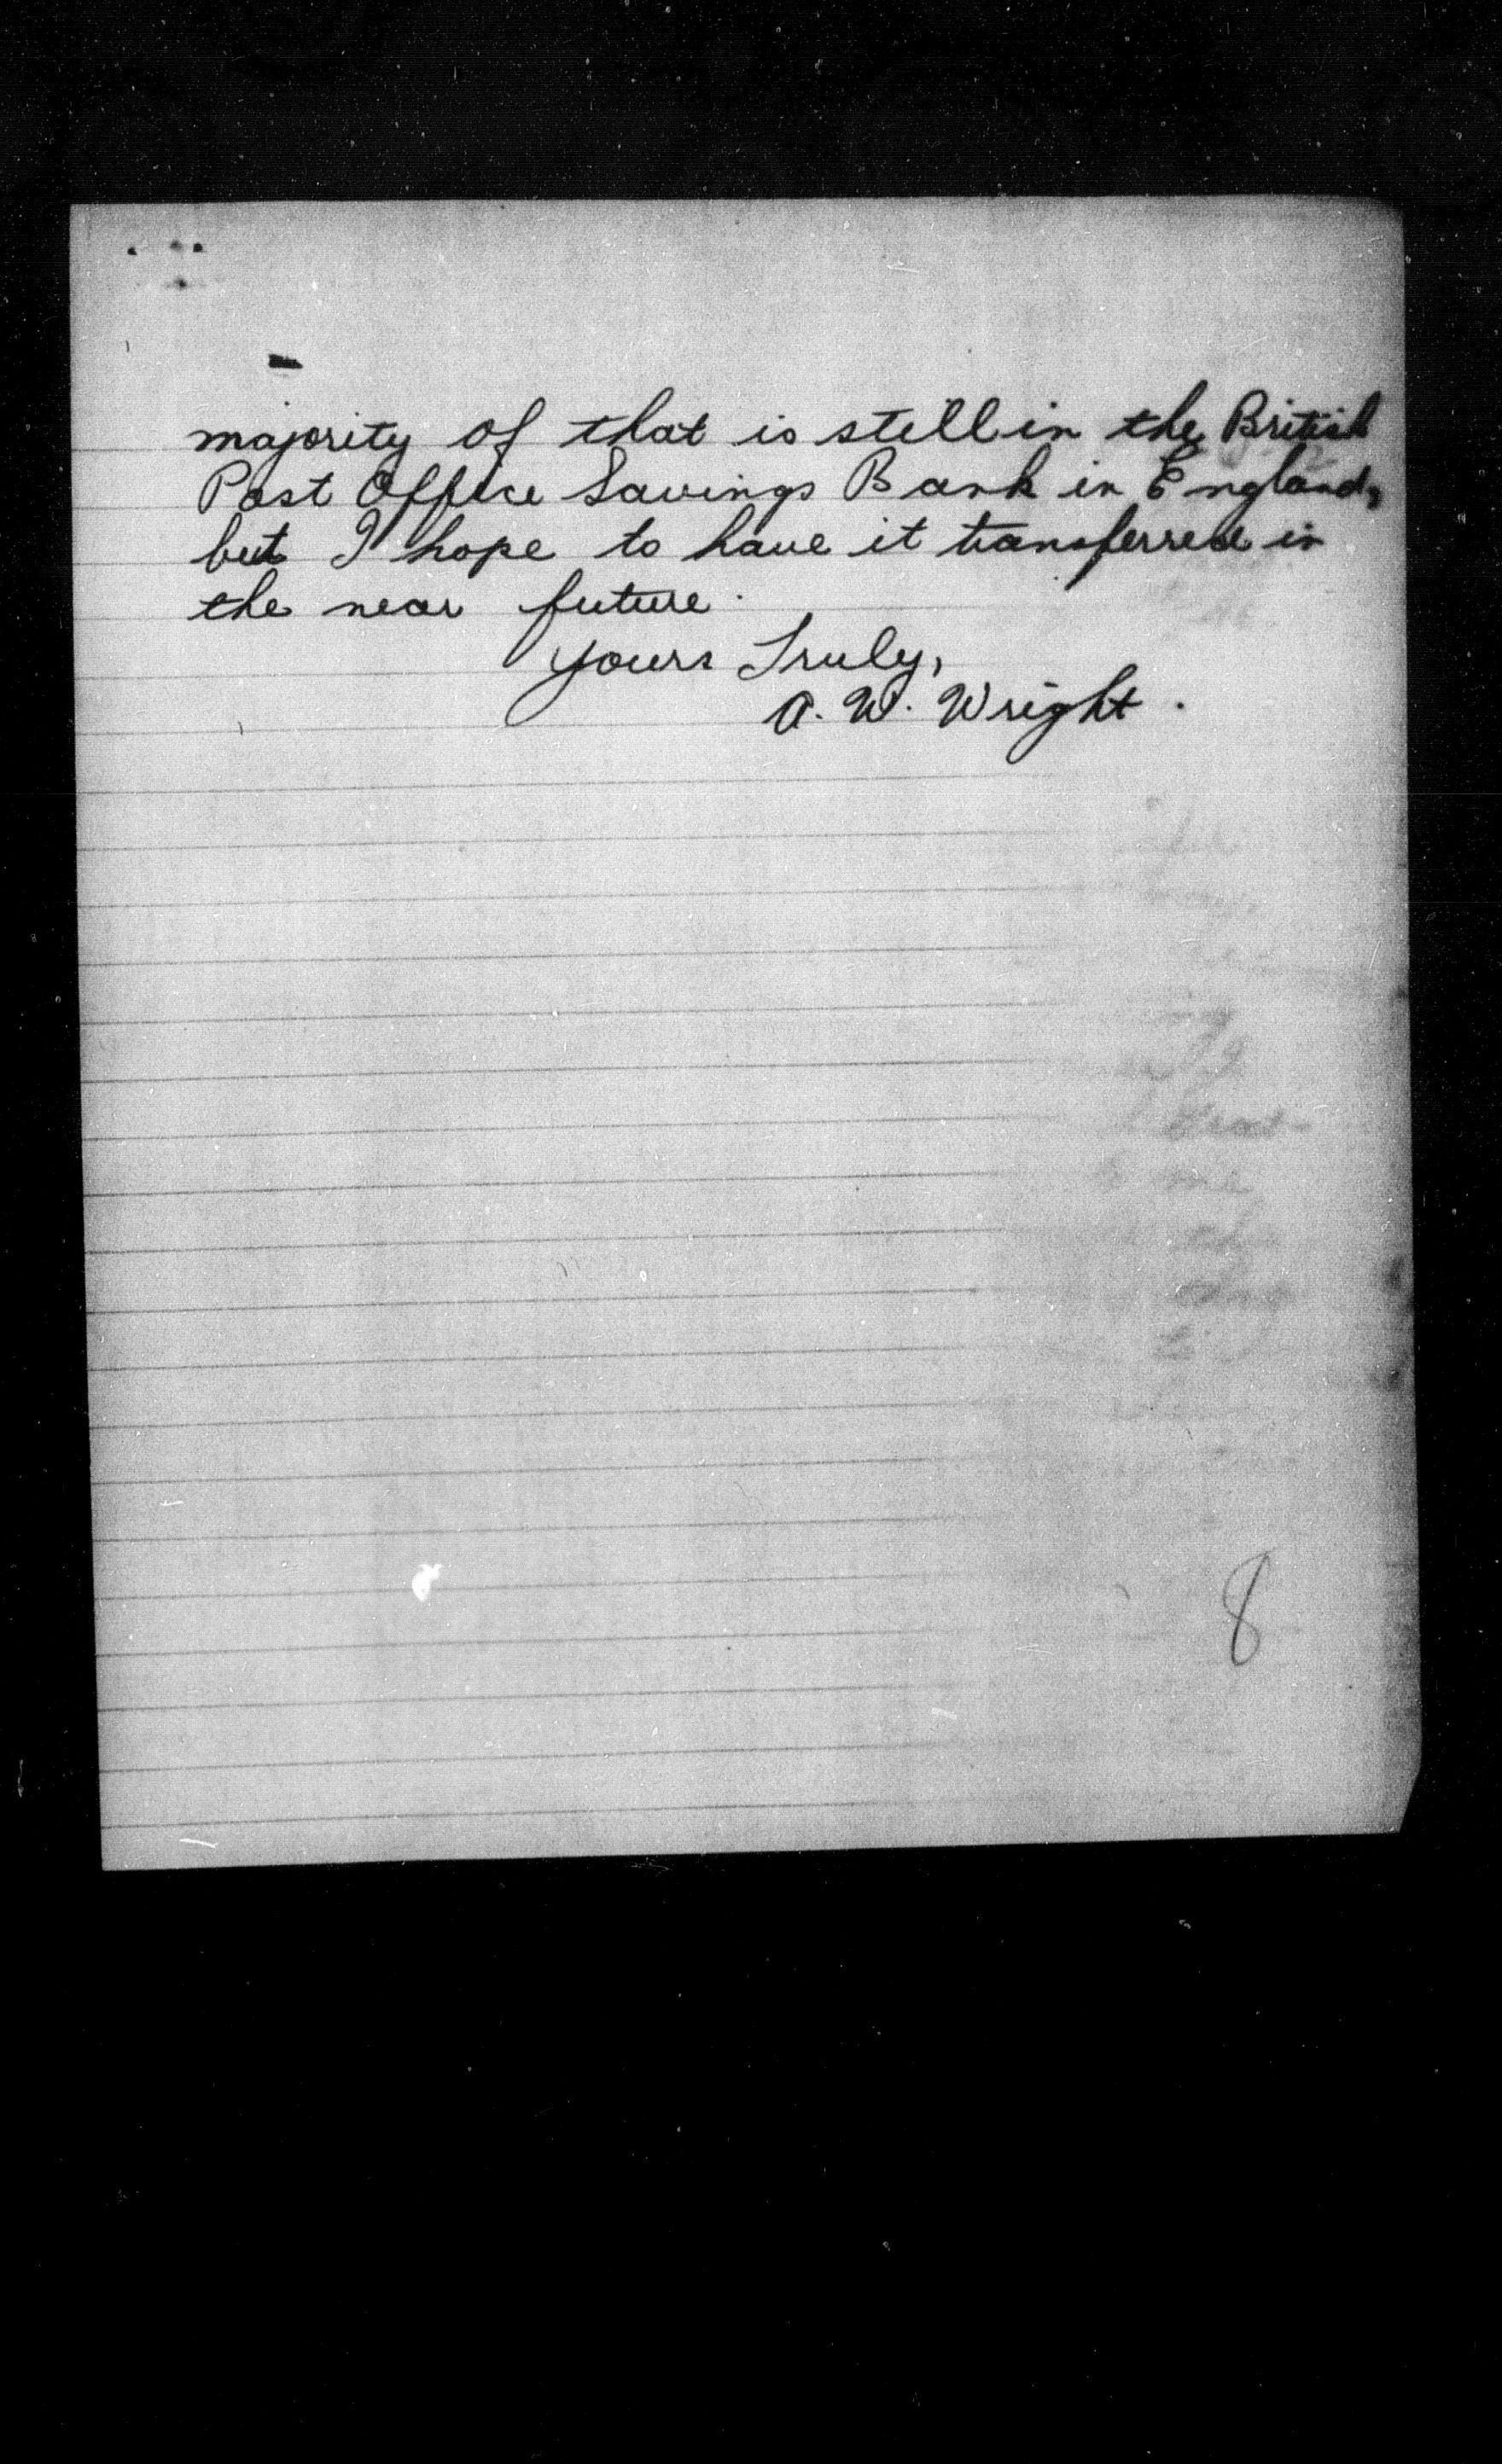 majority of that is still in the British
Post Office Savings Bank in England,
but I hope to have it transferred in
the near future.
Yours Truly,
A. W. Wright.
8